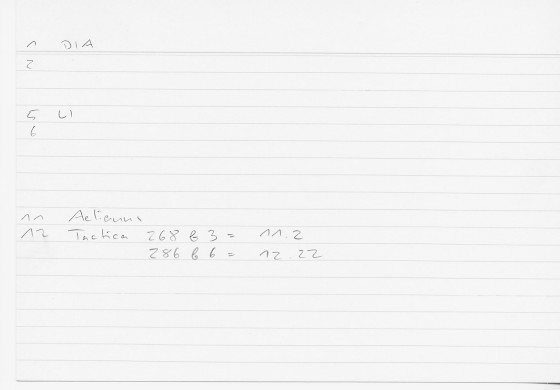 1 DIA
2
5 LI
6
11 Aelianus
12 Tactica 268 b 3 = 11.2
286 b 6 = 12.22